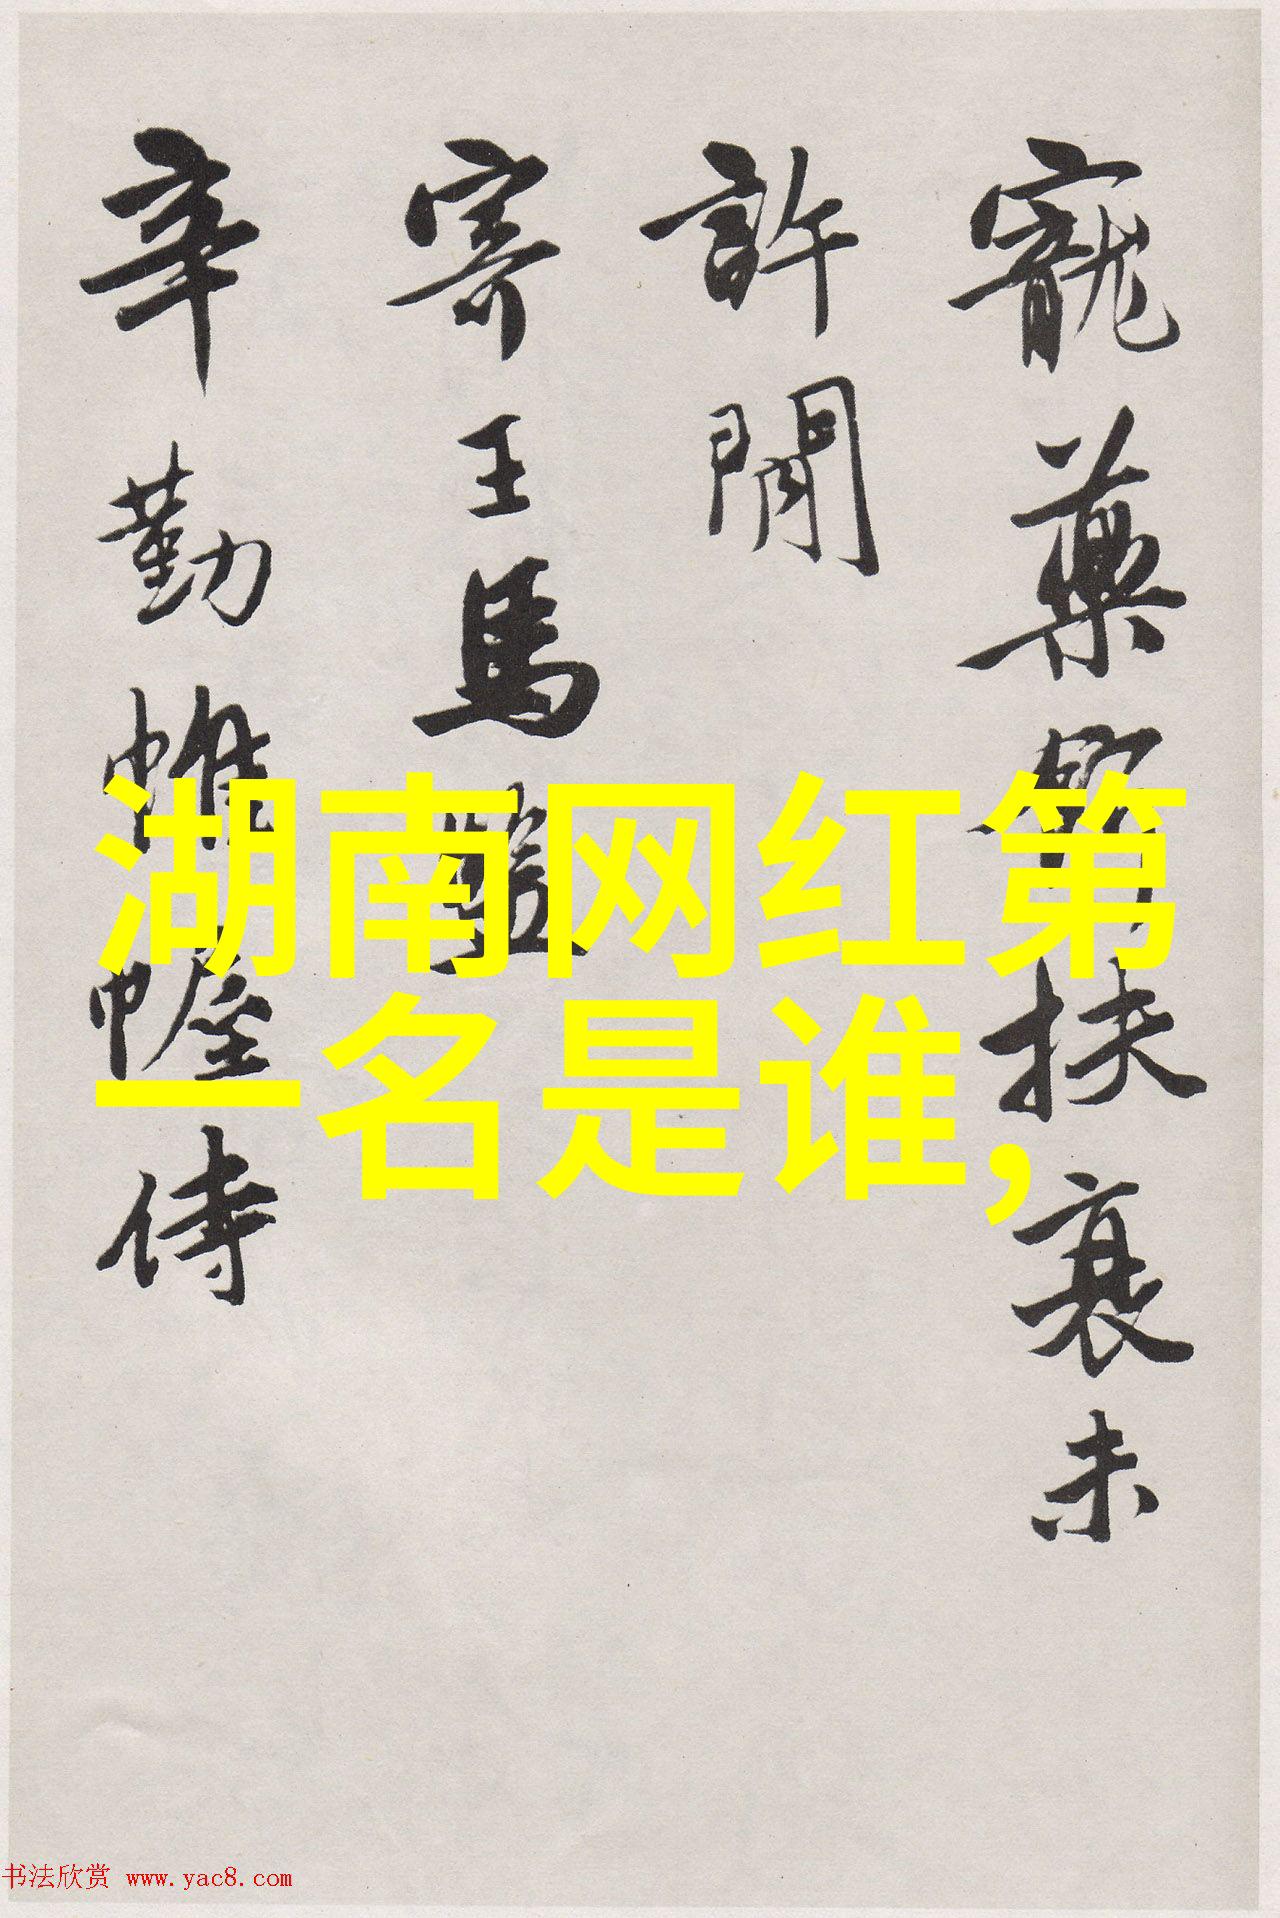 寵藥節扶衰未
許閒
寄王馬監
辛勤帷幄侍
湖南网红第
一名是谁,
书法欣赏 www.yac8.com